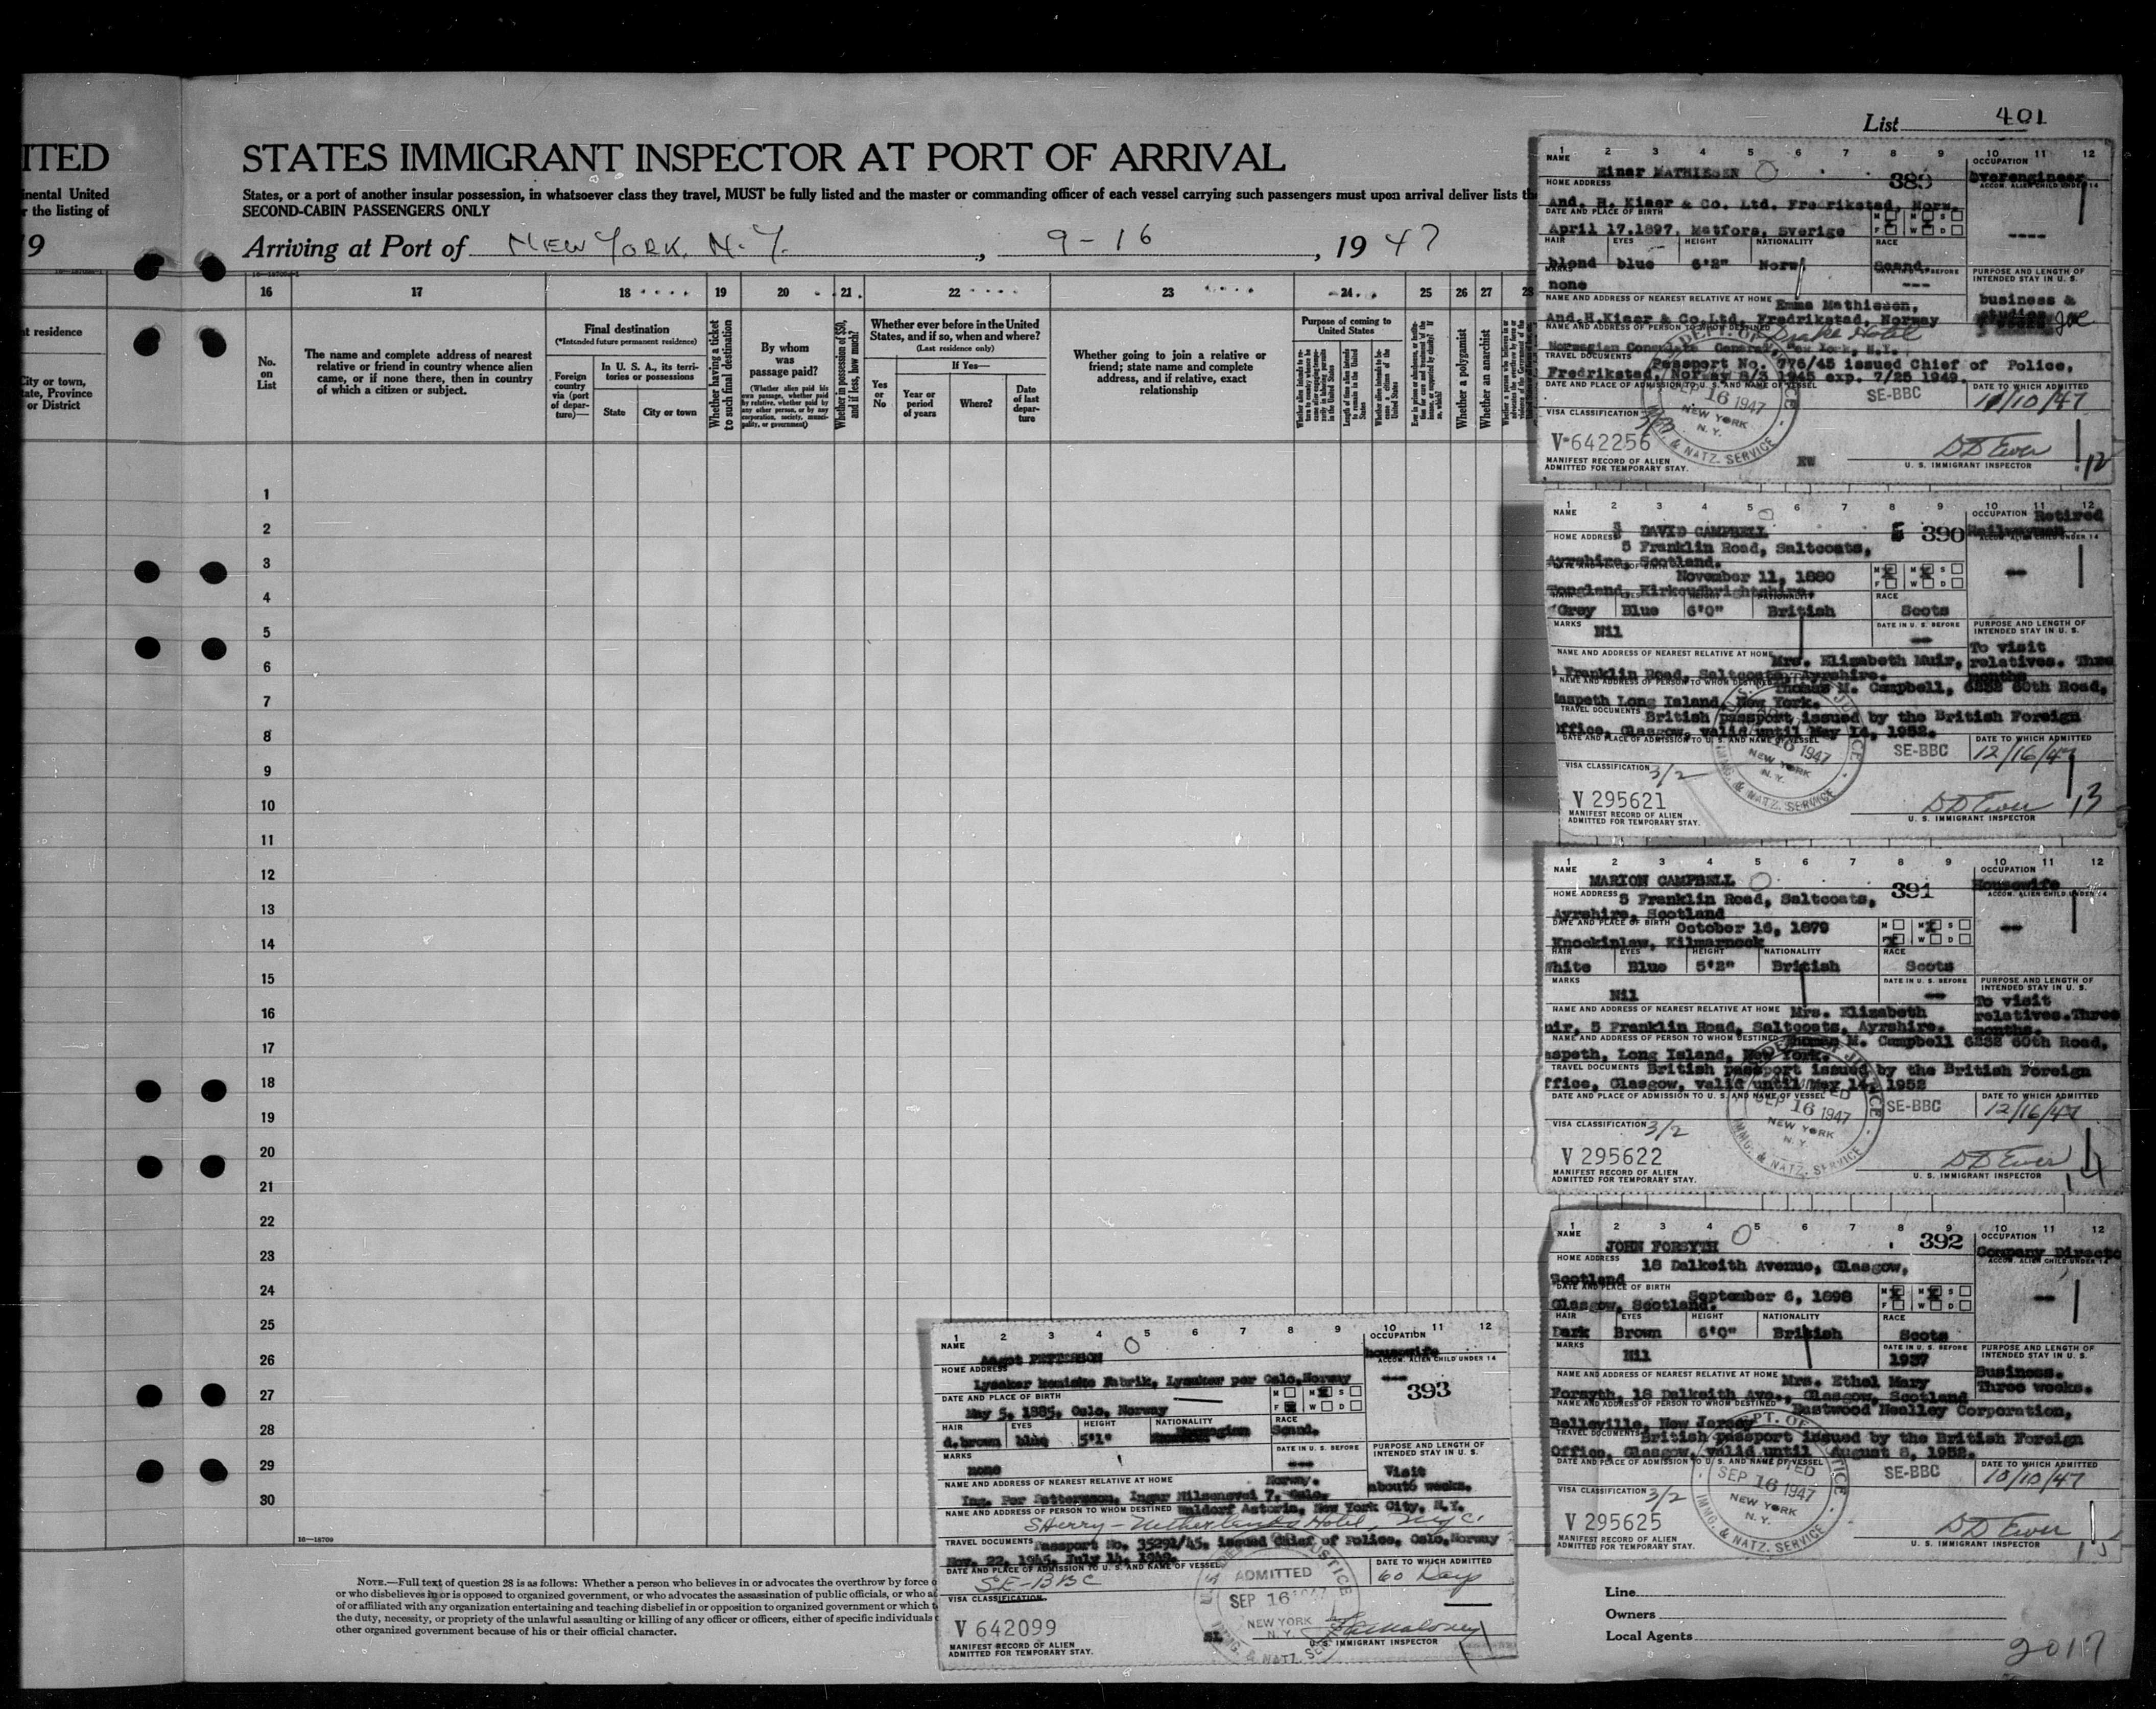 List 401
ITED
inental United
r the listing of
9
t residence
City or town,
tate, Province
or District
STATES IMMIGRANT INSPECTOR AT PORT OF ARRIVAL
States, or a port of another insular possession, in whatsoever class they travel, MUST be fully listed and the master or commanding officer of each vessel carrying such passengers must upon arrival deliver lists th
SECOND-CABIN PASSENGERS ONLY
Arriving at Port of NEW YORK, N.Y., 9-16, 1947
16 17 18 19 20 21 22 23 24 25 26 27 28
No. on List
The name and complete address of nearest relative or friend in country whence alien came, or if none there, then in country of which a citizen or subject.
Final destination
(*Intended future permanent residence)
Foreign country via (port of departure)—
In U. S. A., its territories or possessions
State
City or town
Whether having a ticket to such final destination
By whom was passage paid?
(Whether alien paid his own passage, whether paid by relative, whether paid by any other person, or by any corporation, society, municipality, or government)
Whether in possession of $50, and if less, how much?
Whether ever before in the United States, and if so, when and where?
(Last residence only)
Yes or No
If Yes—
Year or period of years
Where?
Date of last departure
Whether going to join a relative or friend; state name and complete address, and if relative, exact relationship
Purpose of coming to United States
Whether a polygamist
Whether an anarchist
1
2
3
4
5
6
7
8
9
10
11
12
13
14
15
16
17
18
19
20
21
22
23
24
25
26
27
28
29
30
16—18700
NOTE.—Full text of question 28 is as follows: Whether a person who believes in or advocates the overthrow by force o
or who disbelieves in or is opposed to organized government, or who advocates the assassination of public officials, or who a
of or affiliated with any organization entertaining and teaching disbelief in or opposition to organized government or which t
the duty, necessity, or propriety of the unlawful assaulting or killing of any officer or officers, either of specific individuals
other organized government because of his or their official character.
1 2 3 4 5 6 7 8 9 10 11 12
NAME Einar MATHIESEN 389
OCCUPATION Overengineer
HOME ADDRESS
ACCOM. ALIEN CHILD UNDER 14
And. H. Kiaer & Co. Ltd. Fredrikstad, Norw.
DATE AND PLACE OF BIRTH
April 17.1897. Matfors, Sverige
HAIR EYES HEIGHT NATIONALITY RACE
blond blue 6'2" Norw Scand.
MARKS none
PURPOSE AND LENGTH OF INTENDED STAY IN U. S.
business & studies
NAME AND ADDRESS OF NEAREST RELATIVE AT HOME Emma Mathiesen,
And.H.Kiaer & Co.Ltd. Fredrikstad, Norway
NAME AND ADDRESS OF PERSON TO WHOM DESTINED Drake Hotel
Norwegian Consulate General, New York, N.Y.
TRAVEL DOCUMENTS Passport No. 776/45 issued Chief of Police,
Fredrikstad, Norway 8/3 1945 exp. 7/25 1949.
DATE AND PLACE OF ADMISSION TO U. S. AND NAME OF VESSEL SE-BBC
DATE TO WHICH ADMITTED 10/10/47
SEP 16 1947
NEW YORK N. Y.
IMMG. & NATZ. SERVICE
VISA CLASSIFICATION 3/2
V-642256
MANIFEST RECORD OF ALIEN
ADMITTED FOR TEMPORARY STAY.
DD Ewer
U. S. IMMIGRANT INSPECTOR
12
1 2 3 4 5 6 7 8 9 10 11 12
NAME DAVID CAMPBELL 390
OCCUPATION Retired Railwayman
HOME ADDRESS 5 Franklin Road, Saltcoats,
Ayrshire, Scotland.
November 11, 1880
Tongland, Kirkcudbrightshire.
Grey Blue 6'0" British Scots
MARKS Nil
DATE IN U. S. BEFORE --
PURPOSE AND LENGTH OF INTENDED STAY IN U. S.
To visit relatives. Three months
NAME AND ADDRESS OF NEAREST RELATIVE AT HOME Mrs. Elizabeth Muir,
Franklin Road, Saltcoats, Ayrshire.
NAME AND ADDRESS OF PERSON TO WHOM DESTINED Thomas M. Campbell, 6232 60th Road,
Maspeth Long Island, New York.
TRAVEL DOCUMENTS British passport issued by the British Foreign
Office, Glasgow, valid until May 14, 1952.
DATE AND PLACE OF ADMISSION TO U. S. AND NAME OF VESSEL SE-BBC
DATE TO WHICH ADMITTED 12/16/47
16 1947
NEW YORK N. Y.
IMMG. & NATZ. SERVICE
VISA CLASSIFICATION 3/2
V 295621
MANIFEST RECORD OF ALIEN
ADMITTED FOR TEMPORARY STAY.
DD Ewer
U. S. IMMIGRANT INSPECTOR
13
1 2 3 4 5 6 7 8 9 10 11 12
NAME MARION CAMPBELL 391
OCCUPATION Housewife
HOME ADDRESS 5 Franklin Road, Saltcoats,
Ayrshire, Scotland
DATE AND PLACE OF BIRTH October 16, 1879
Knockinlaw, Kilmarnock
HAIR EYES HEIGHT NATIONALITY RACE
White Blue 5'2" British Scots
MARKS Nil
DATE IN U. S. BEFORE --
PURPOSE AND LENGTH OF INTENDED STAY IN U. S.
To visit relatives. Three months.
NAME AND ADDRESS OF NEAREST RELATIVE AT HOME Mrs. Elizabeth
uir, 5 Franklin Road, Saltcoats, Ayrshire.
NAME AND ADDRESS OF PERSON TO WHOM DESTINED Thomas M. Campbell 6232 60th Road,
aspeth, Long Island, New York.
TRAVEL DOCUMENTS British passport issued by the British Foreign
ffice, Glasgow, valid until May 14, 1952
DATE AND PLACE OF ADMISSION TO U. S. AND NAME OF VESSEL SE-BBC
DATE TO WHICH ADMITTED 12/16/47
SEP 16 1947
NEW YORK N. Y.
IMMG. & NATZ. SERVICE
VISA CLASSIFICATION 3/2
V 295622
MANIFEST RECORD OF ALIEN
ADMITTED FOR TEMPORARY STAY.
DD Ewer
U. S. IMMIGRANT INSPECTOR
14
1 2 3 4 5 6 7 8 9 10 11 12
NAME JOHN FORSYTH 392
OCCUPATION Company Directo
HOME ADDRESS 18 Dalkeith Avenue, Glasgow,
Scotland
DATE AND PLACE OF BIRTH September 6, 1898
Glasgow, Scotland.
HAIR EYES HEIGHT NATIONALITY RACE
Dark Brown 6'0" British Scots
MARKS Nil
DATE IN U. S. BEFORE 1937
PURPOSE AND LENGTH OF INTENDED STAY IN U. S.
Business. Three weeks.
NAME AND ADDRESS OF NEAREST RELATIVE AT HOME Mrs. Ethel Mary
Forsyth, 18 Dalkeith Ave., Glasgow, Scotland
NAME AND ADDRESS OF PERSON TO WHOM DESTINED Eastwood Nealley Corporation,
Belleville, New Jersey
TRAVEL DOCUMENTS British passport issued by the British Foreign
Office, Glasgow, valid until August 8, 1952.
DATE AND PLACE OF ADMISSION TO U. S. AND NAME OF VESSEL SE-BBC
DATE TO WHICH ADMITTED 10/10/47
SEP 16 1947
NEW YORK N. Y.
IMMG. & NATZ. SERVICE
VISA CLASSIFICATION 3/2
V 295625
MANIFEST RECORD OF ALIEN
ADMITTED FOR TEMPORARY STAY.
DD Ewer
U. S. IMMIGRANT INSPECTOR
15
1 2 3 4 5 6 7 8 9 10 11 12
NAME Aagot PETTERSON
OCCUPATION housewife
HOME ADDRESS
ACCOM. ALIEN CHILD UNDER 14
Lysaker kemiske Fabrik, Lysaker per Oslo, Norway
393
DATE AND PLACE OF BIRTH
May 5, 1885, Oslo, Norway
HAIR EYES HEIGHT NATIONALITY RACE
d.brown blue 5'1" Norwegian Scand.
MARKS none
DATE IN U. S. BEFORE ---
PURPOSE AND LENGTH OF INTENDED STAY IN U. S.
Visit about 6 weeks.
NAME AND ADDRESS OF NEAREST RELATIVE AT HOME Norway.
Ing. Per Pettersson, Ingar Nilsensvei 7, Oslo.
NAME AND ADDRESS OF PERSON TO WHOM DESTINED Waldorf Astoria, New York City, N.Y.
Sherry-Netherlands Hotel, NYC.
TRAVEL DOCUMENTS Passport No. 35291/45, issued Chief of Police, Oslo, Norway
Nov. 22, 1945, July 14, 1949.
DATE AND PLACE OF ADMISSION TO U. S. AND NAME OF VESSEL
SE-BBC
DATE TO WHICH ADMITTED 60 Days
ADMITTED
SEP 16 1947
NEW YORK N. Y.
VISA CLASSIFICATION
V 642099
MANIFEST RECORD OF ALIEN
ADMITTED FOR TEMPORARY STAY.
U. S. IMMIGRANT INSPECTOR
Line
Owners
Local Agents
2017